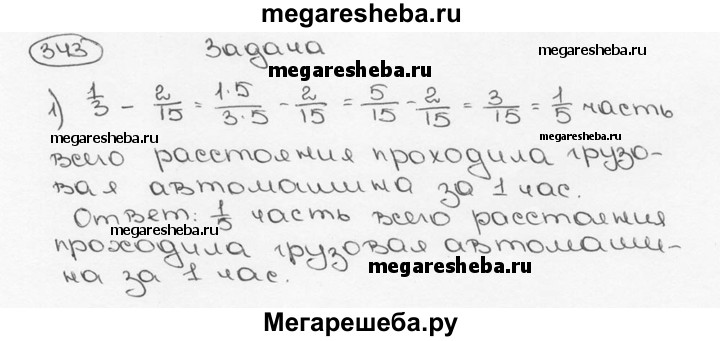 megaresheba.ru
343 Задача
megaresheba.ru
megaresheba.ru
1) 1/3 - 2/15 = 1·5/3·5 - 2/15 = 5/15 - 2/15 = 3/15 = 1/5 часть
megaresheba.ru
megaresheba.ru
всего расстояния проходила грузо-
вая автомашина за 1 час.
megaresheba.ru
Ответ: 1/5 часть всего расстояния
megaresheba.ru
проходила грузовая автомаши-
на за 1 час.
megaresheba.ru
Мегарешеба.ру